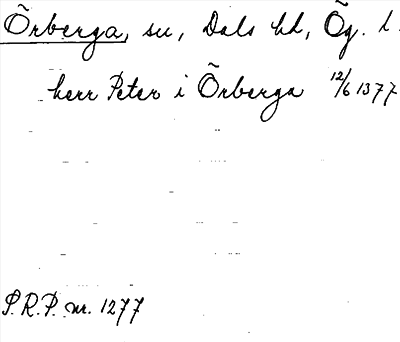 Örberga, sn, Dals hd, Ög. l.
herr Peter i Örberga 12/6 1377
S.R.P. nr. 1277